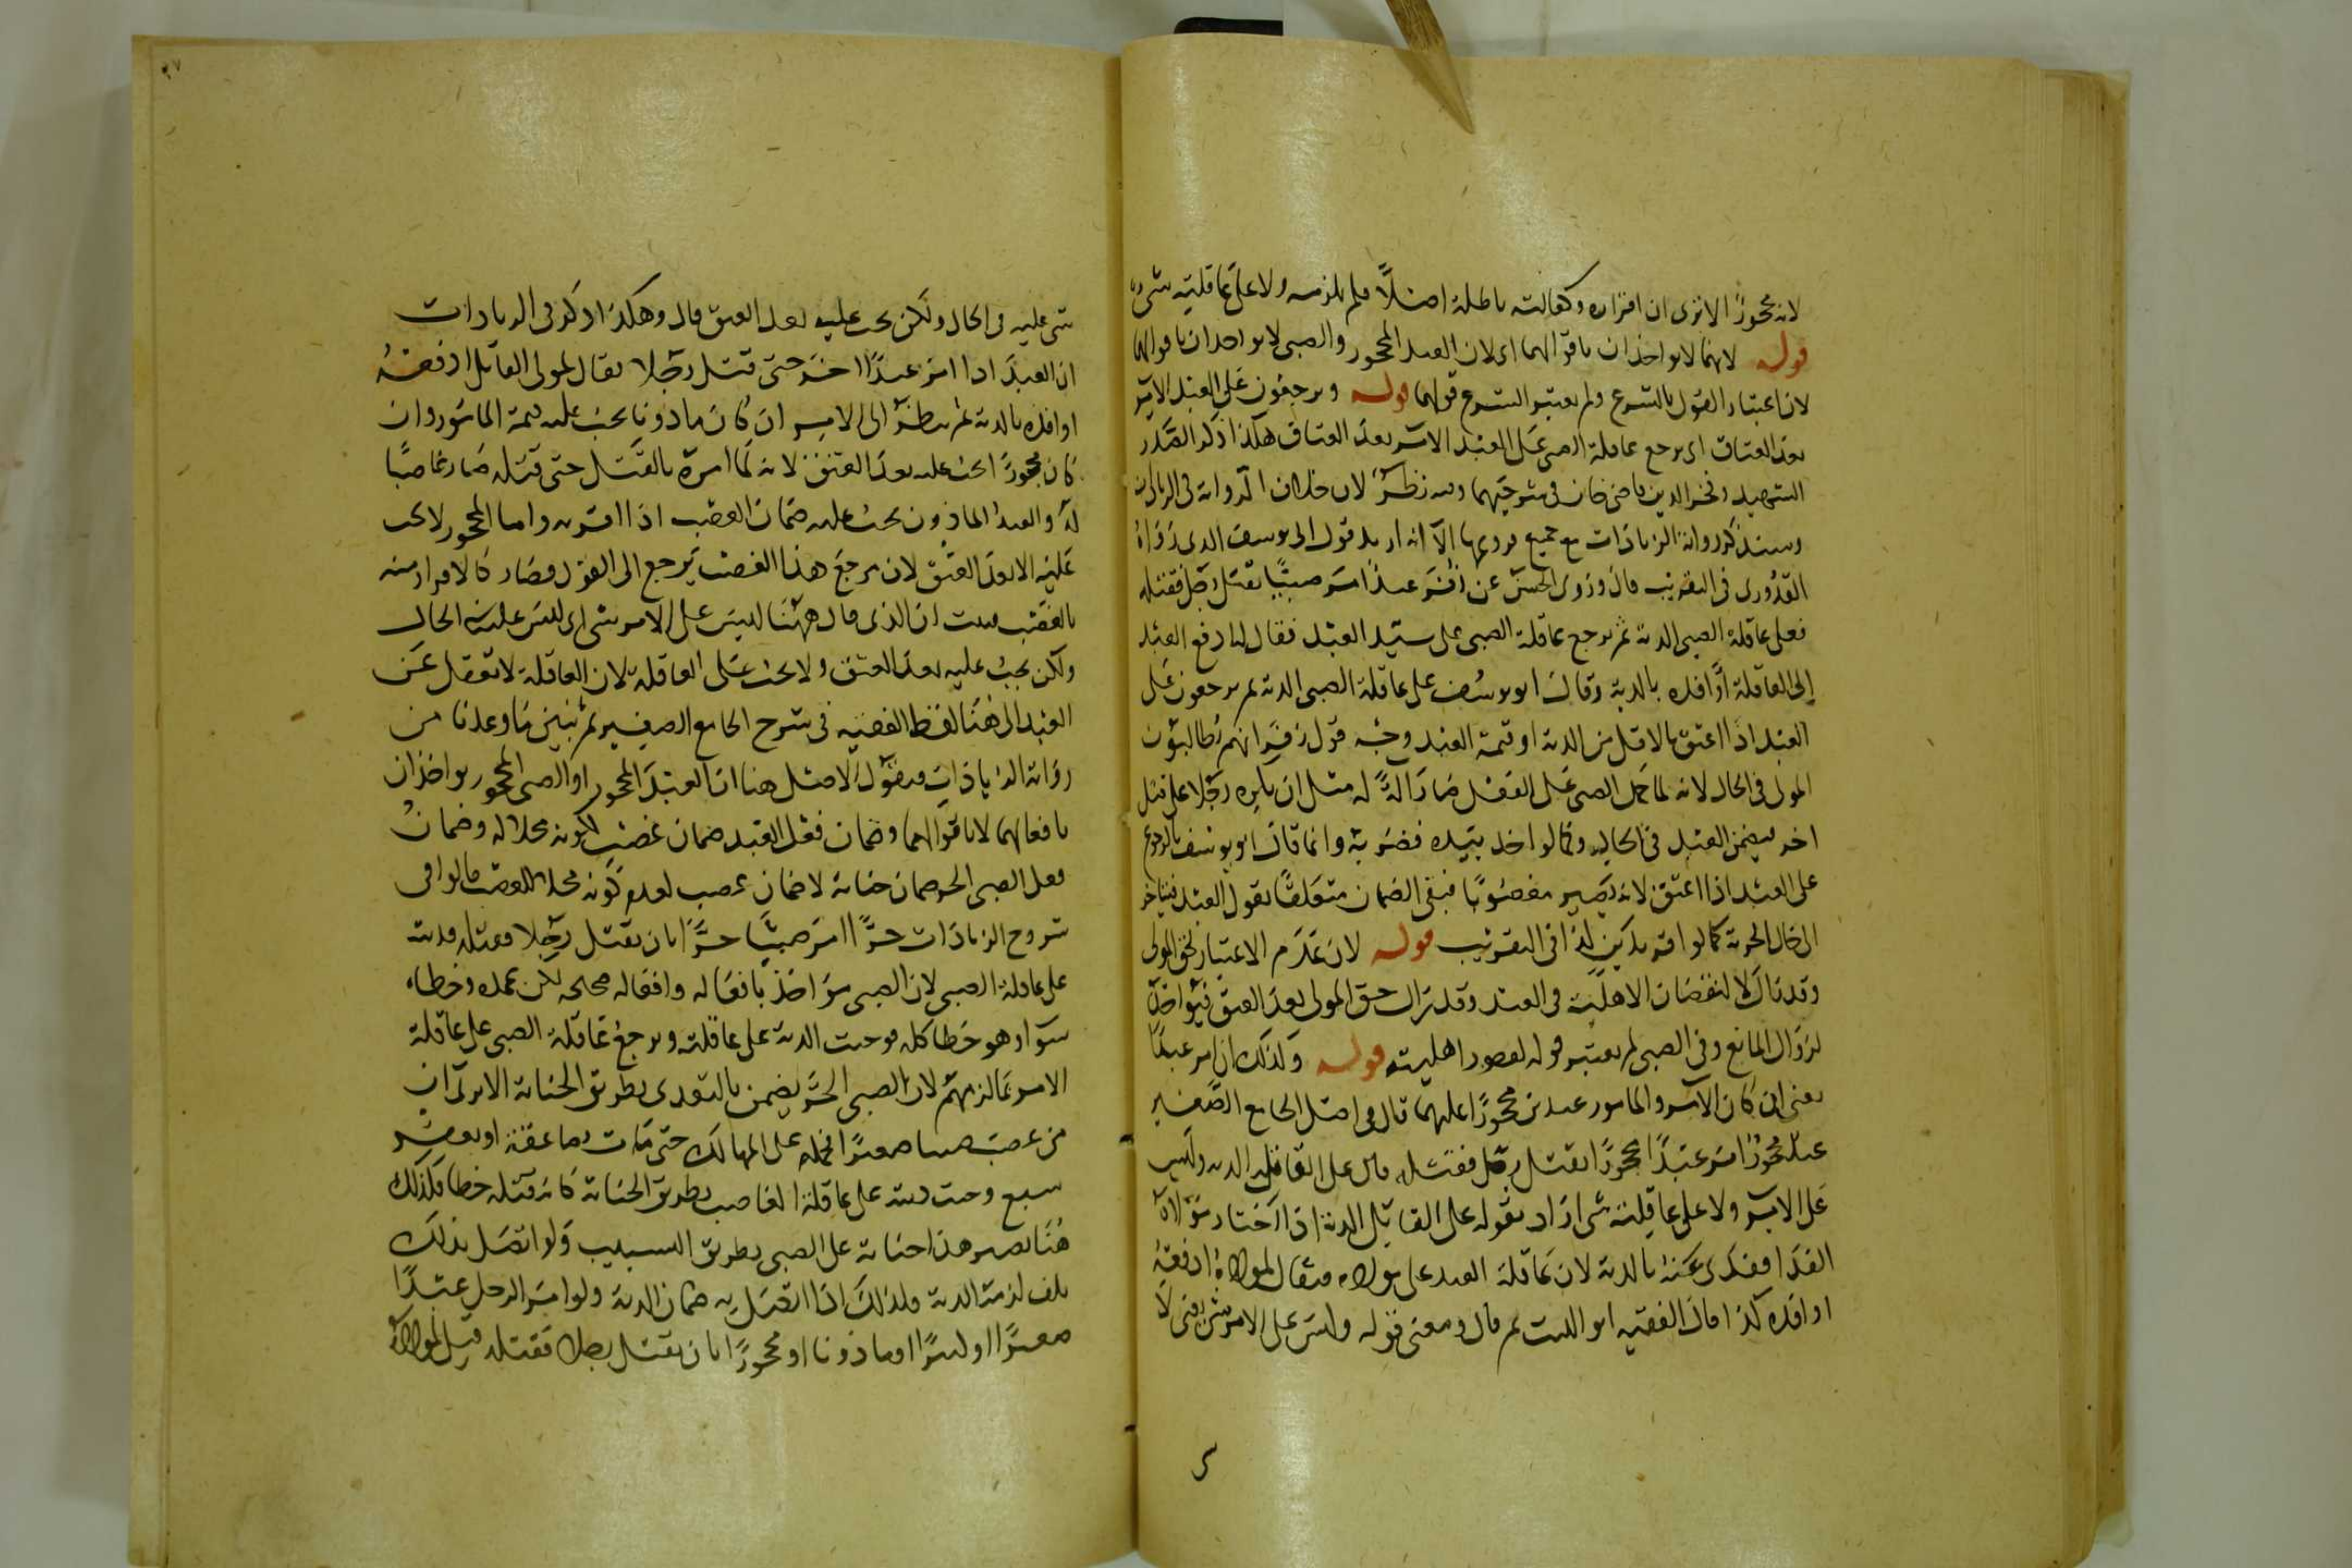 لانه محجورًا الا ترى ان اقراره وكفالته باطلة اصلًا فلم يلزمه ولا على عاقلته شيء
قوله لانهما لا يواخذان باقوالهما اى لان العبد المحجور والصبى لا يواخذان باقوالهما
لان اعتبار القول بالشرع ولم يعتبر الشرع قولهما قوله ويرجعون على العبد الآمر
بعد العتاق اى يرجع عاقلة الصبى على العبد الآمر بعد العتاق هكذا ذكر الصدر
الشهيد وفخر الدين قاضى خان فى شرحيهما وفيه نظر لان خلاف الرواية فى الزيادات
وسنذكر رواية الزيادات مع جميع فروعها الا انه اريد قول ابى يوسف الذى رواه
القدورى فى التقريب قال وروى الحسن عن زفر عبدًا امر صبيًا بقتل رجل فقتله
فعلى عاقلة الصبى الدية ثم يرجع عاقلة الصبى على سيد العبد فقال لها ادفع العبد
الى العاقلة او افده بالدية وقال ابو يوسف على عاقلة الصبى الدية ثم يرجعون على
العبد اذا اعتق بالاقل من الدية او قيمة العبد وجه قول زفر انهم يطالبون
المولى فى الحال لانه لما حمل الصبى على القتل صار آلة له مثل ان يكره رجلا على قتل
اخر فيضمن العبد فى الحال وكما لو اخذ بيده فضربه وانما قال ابو يوسف بالرجوع
على العبد اذا اعتق لانه يصير مغصوبًا فبقى الضمان متعلقًا بقول العبد فيتاخر
الى حال الحرية كما لو اقر بدين كذا فى التقريب قوله لان عدم الاعتبار لحق المولى
وقد زال لا لنقصان الاهلية فى العبد وقد زال حق المولى بعد العتق فيؤاخذ
لزوال المانع وفى الصبى لم يعتبر قوله لقصور اهليته قوله وكذلك ان امر عبدًا
يعنى ان كان الآمر والمامور عبدين محجورًا عليهما قال فى اصل الجامع الصغير
عبد محجور امر عبدًا محجورًا بقتل رجل فقتله قال على القاتل الدية وليس
على الامر ولا على عاقلته شى اراد بقوله على القاتل الدية اذا اختار مولاه
الفدا فيفدى عنه بالدية لان عاقلة العبد على مولاه فيقال لمولاه ادفعه
او افده كذا قال الفقيه ابو الليث ثم قال ومعنى قوله وليس على الامر شى يعنى لا
شى عليه فى الحال ولكن يجب عليه بعد العتق قال وهكذا ذكر فى الزيادات
ان العبد اذا امر عبدًا اخر حتى قتل رجلا يقال لمولى القاتل ادفعه
او افده بالدية ثم ينظر الى الامر ان كان ماذونا يجب عليه قيمة المامور وان
كان محجورًا يجب عليه بعد العتق لانه لما امره بالقتل حتى قتله صار غاصبًا
له والعبد الماذون يجب عليه ضمان الغصب اذا اقر به واما المحجور لا يجب
عليه الا بعد العتق لان مرجع هذا الغصب يرجع الى القول فصار كالاقرار منه
بالغصب فثبت ان الذى قال ههنا ليس على الامر شى اى ليس عليه فى الحال
ولكن يجب عليه بعد العتق ولا يجب على العاقلة لان العاقلة لا تعقل عن
العبد الى هنا لفظ الفقيه فى شرح الجامع الصغير ثم نبين ما وعدنا من
رواية الزيادات فنقول الاصل هنا ان العبد المحجور او الصبى المحجور يواخذان
بافعالهما لا باقوالهما وضمان فعل العبد ضمان غصب لكونه محلا له وضمان
فعل الصبى الحر ضمان جناية لا ضمان غصب لعدم كونه محلا للغصب قالوا فى
شروح الزيادات حرًّا امر صبيًا حرًّا بان يقتل رجلا فقتله فديته
على عاقلة الصبى لان الصبى مؤاخذ بافعاله وافعاله صحيحة لكن عمده وخطاه
سوا وهو خطا كله فوجبت الدية على عاقلته ويرجع عاقلة الصبى على عاقلة
الامر بما لزمهم لان الصبى الحر يضمن بالتعدى بطريق الجناية الا يرى ان
من غصب صبيا صغيرًا فحمله على المهالك حتى مات بصاعقة او بعقر
سبع وجبت ديته على عاقلة الغاصب بطريق الجناية كانه قتله خطا فكذلك
هنا يصير هذا جناية على الصبى بطريق التسبيب ولو اتصل بذلك
تلف لزمته الدية فلذلك اذا اتصل به ضمان الدية ولو امر الرجل عبدًا
صغيرًا او كبيرًا او ماذونا او محجورًا بان يقتل رجلا فقتله قيل لمولاه